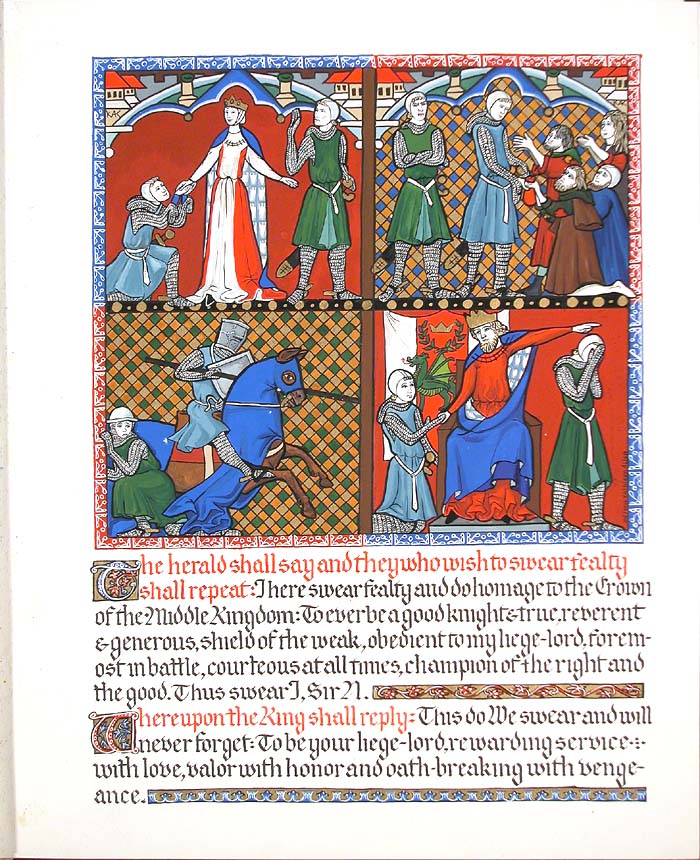 KAC
KAC
The herald shall say and they who wish to swear fealty
shall repeat: I here swear fealty and do homage to the Crown
of the Middle Kingdom: To ever be a good knight & true, reverent
& generous, shield of the weak, obedient to my liege-lord, forem-
ost in battle, courteous at all times, champion of the right and
the good. Thus swear I, Sir N.
Thereupon the King shall reply: This do We swear and will
never forget: To be your liege-lord, rewarding service
with love, valor with honor and oath-breaking with venge-
ance.